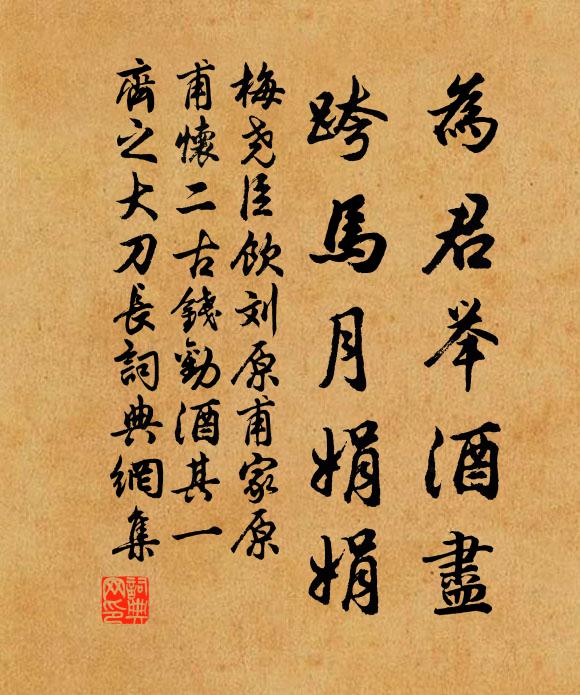 為君举酒盡
跨馬月娟娟
梅尧臣飲刘原甫家原
甫懷二古錢勸酒其一
齊之大刀長詞典網集
詞典
网印